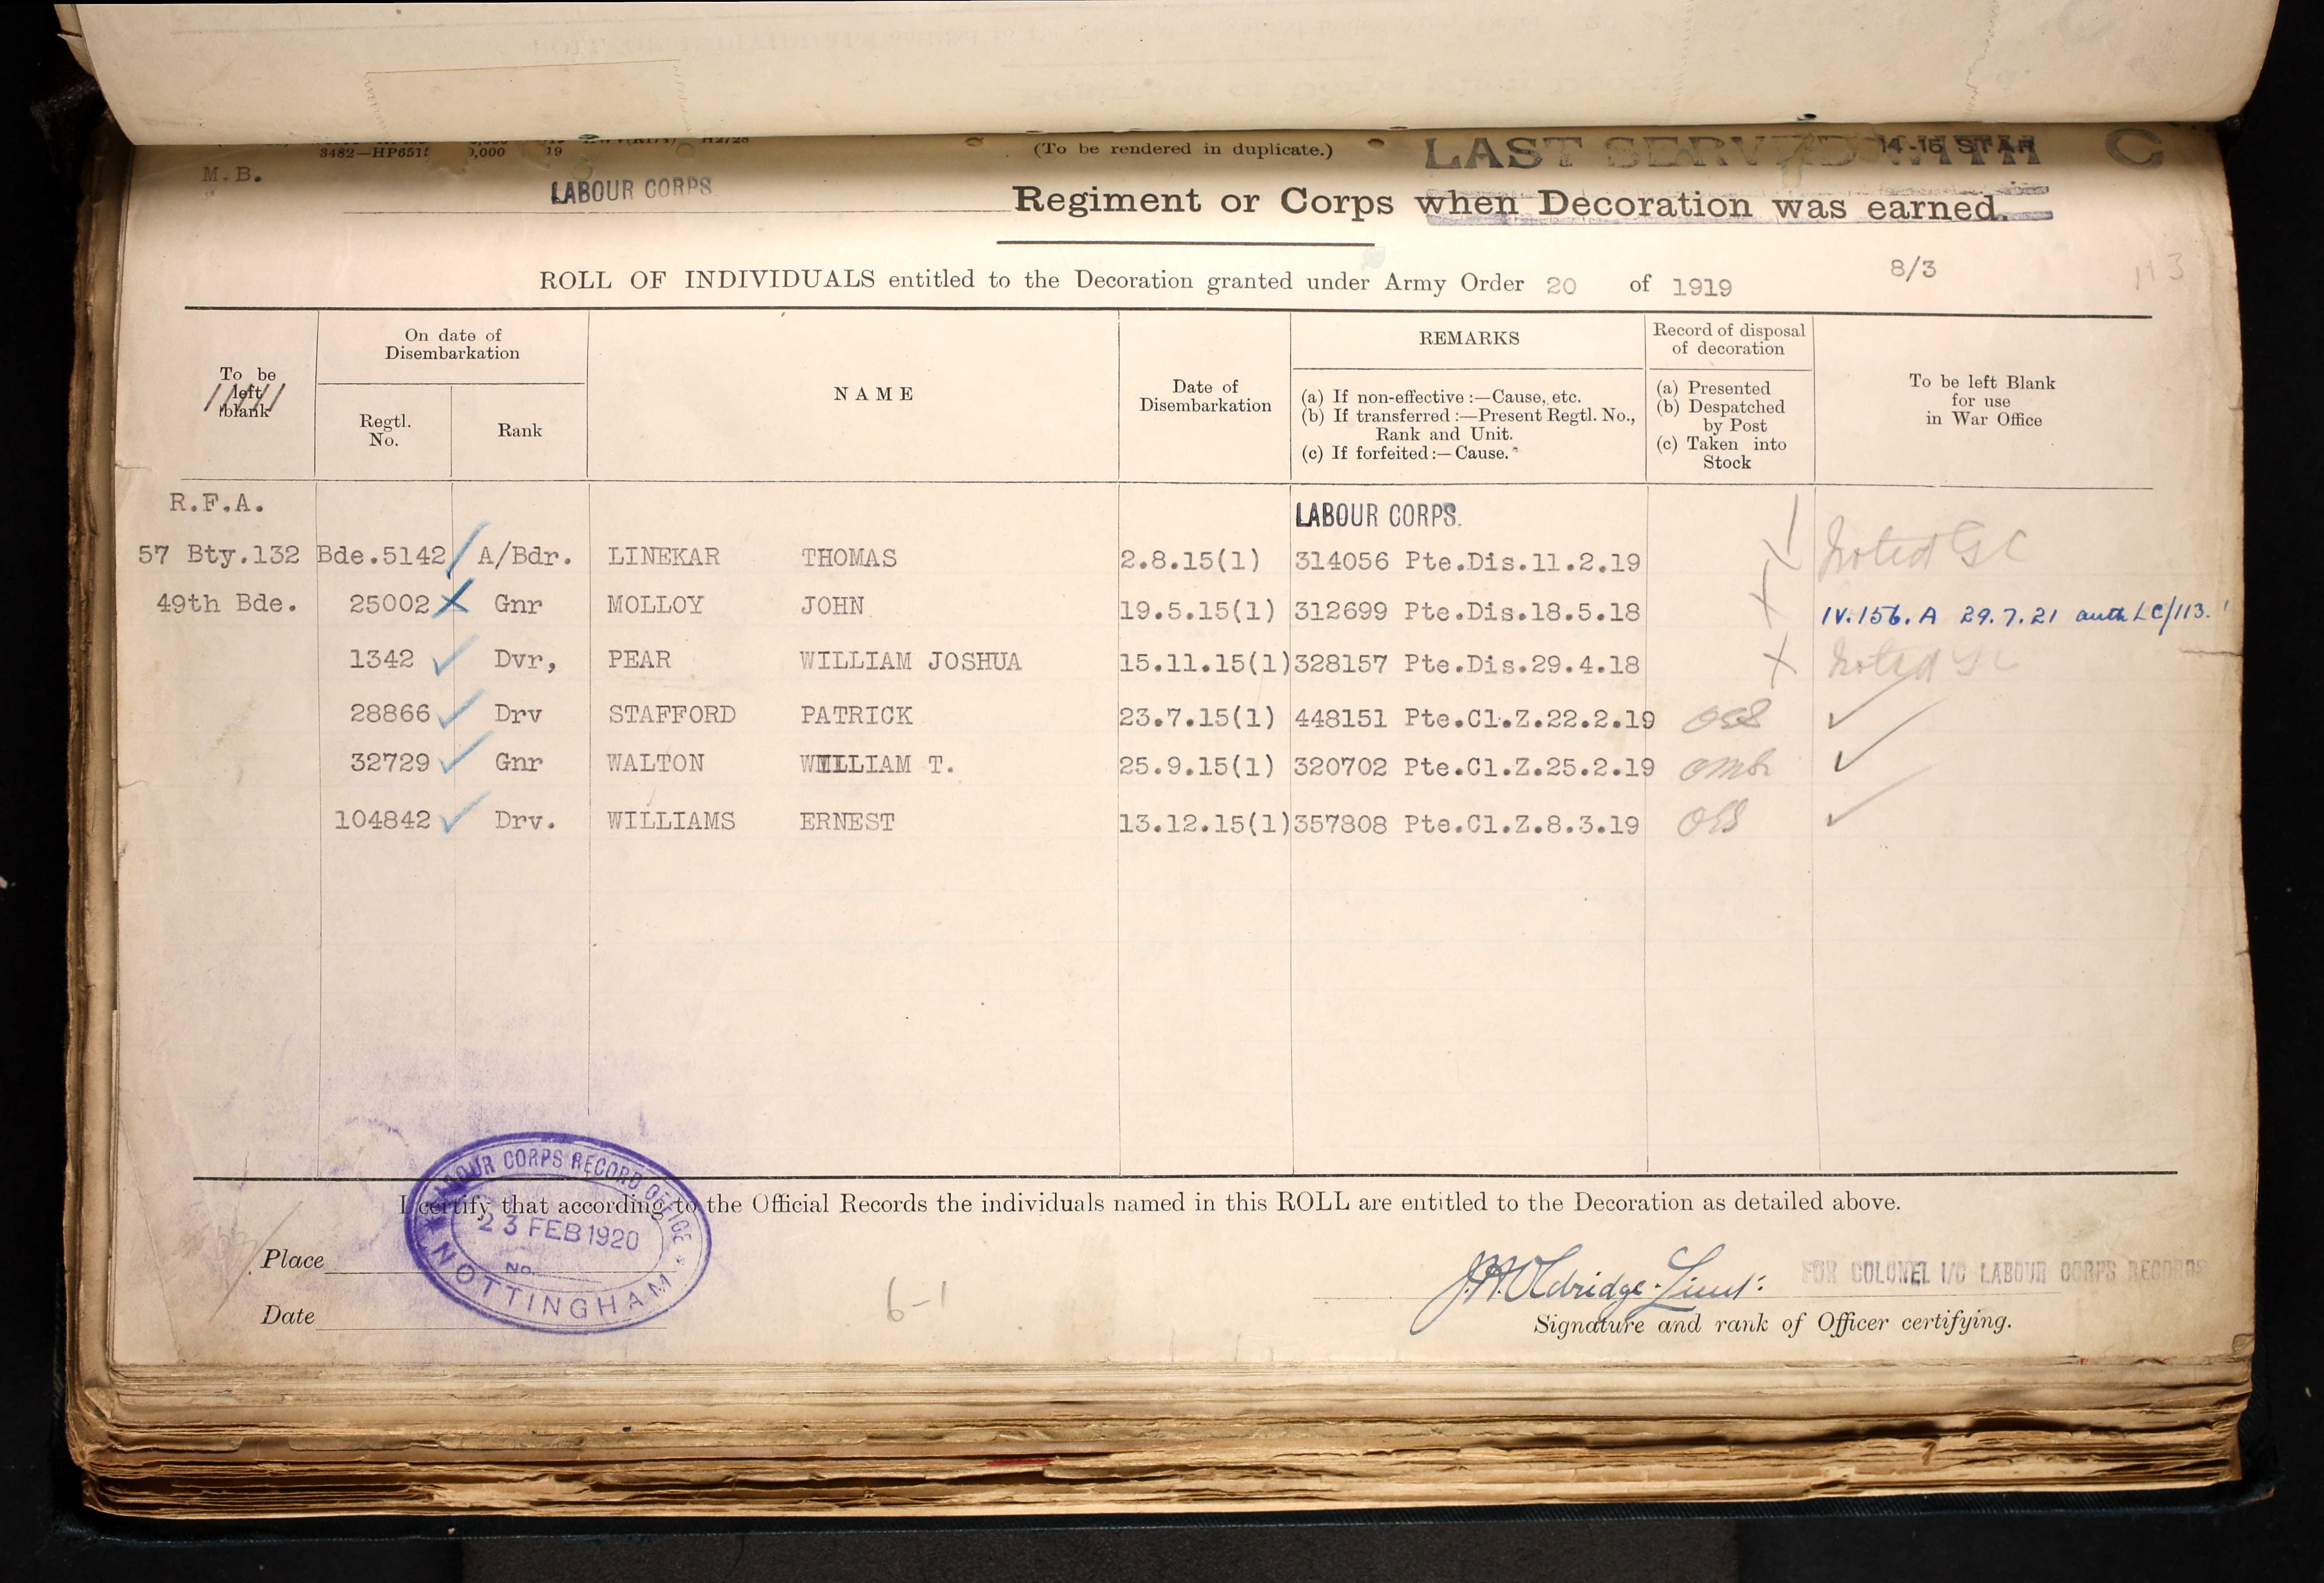 3482—HP6515 0,000 19 H2728
(To be rendered in duplicate.)
LAST SERVED WITH
14-15 STAR
C
M.B.
LABOUR CORPS
Regiment or Corps when Decoration was earned.
ROLL OF INDIVIDUALS entitled to the Decoration granted under Army Order 20 of 1919
8/3
113
To be left blank
On date of Disembarkation
Regtl. No.
Rank
NAME
Date of Disembarkation
REMARKS
(a) If non-effective :—Cause, etc.
(b) If transferred :—Present Regtl. No., Rank and Unit.
(c) If forfeited :—Cause.
Record of disposal of decoration
(a) Presented
(b) Despatched by Post
(c) Taken into Stock
To be left Blank for use in War Office
R.F.A.
LABOUR CORPS.
57 Bty.132 Bde.5142 A/Bdr. LINEKAR THOMAS 2.8.15(1) 314056 Pte.Dis.11.2.19 Noted GC
49th Bde. 25002 Gnr MOLLOY JOHN 19.5.15(1) 312699 Pte.Dis.18.5.18 X IV.156.A 29.7.21 auth LC/113.
1342 Dvr, PEAR WILLIAM JOSHUA 15.11.15(1) 328157 Pte.Dis.29.4.18 X Noted GC
28866 Drv STAFFORD PATRICK 23.7.15(1) 448151 Pte.Cl.Z.22.2.19
32729 Gnr WALTON WILLIAM T. 25.9.15(1) 320702 Pte.Cl.Z.25.2.19
104842 Drv. WILLIAMS ERNEST 13.12.15(1) 357808 Pte.Cl.Z.8.3.19
I certify that according to the Official Records the individuals named in this ROLL are entitled to the Decoration as detailed above.
LABOUR CORPS RECORD OFFICE
23 FEB 1920
No.
NOTTINGHAM
Place
Date
6-1
Oldridge Lieut:
FOR COLONEL I/C LABOUR CORPS RECORDS
Signature and rank of Officer certifying.